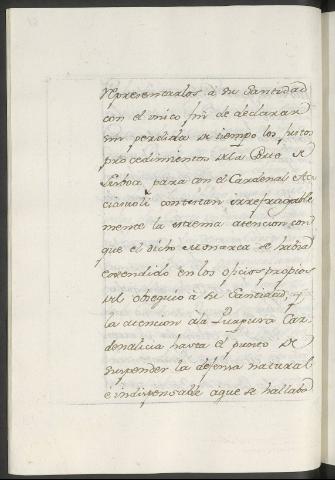 representarlos à su Santidad
con el unico fin de declarar
sin perdida de tiempo los justos
procedimientos dela Corte de
Lisboa, para con el Cardenal Ac-
ciaiuoli contestan irrefragable
mente la extrema atencion con
que el dicho Monarca se habia
excendido en los oficios propios
del obsequio à su Santidad, y
la atencion ála Purpura Car-
denalicia hasta el punto de
suspender la defensa natural
é indispensable aque se hallaba